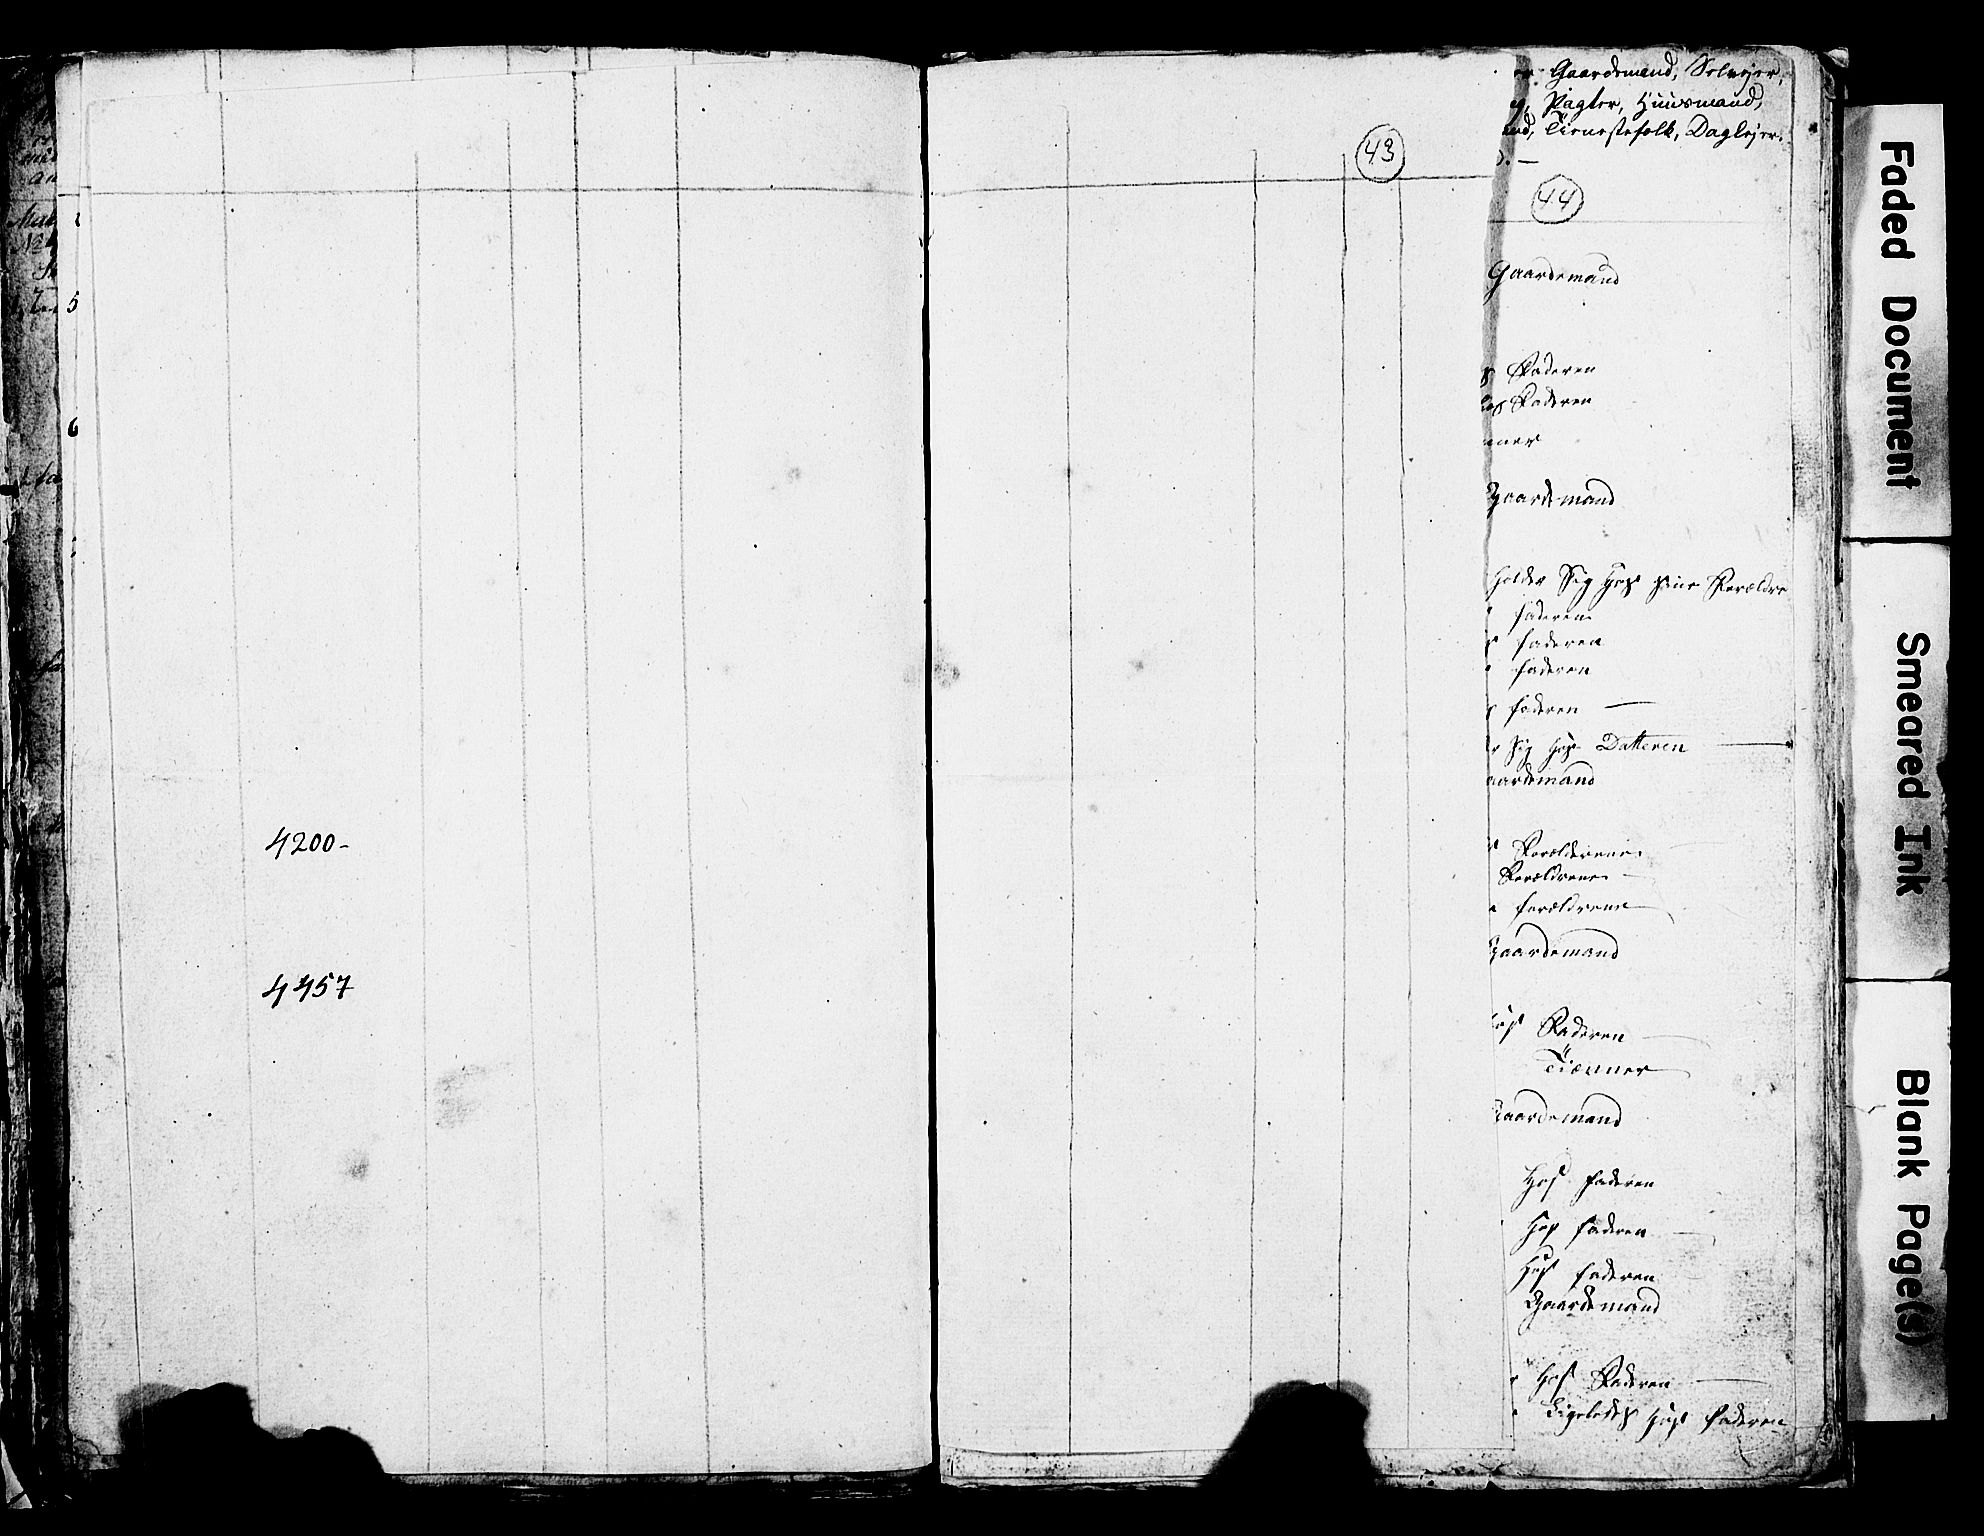 5
6
4200-
4457
43
Gaardemand, Selvejer,
Pagter, Huusmand,
Tienestefolk, Daglejer.
44
Gaardemand
Faderen
Faderen
Gaardemand
holder Sig hos sine Forældre
faderen
faderen
faderen
faderen —
Sig hos Datteren —
aardemand
Forælderene
Forældrene
forældrene
Gaardemand
Faderen
Tiænner
Gaardemand
Hos faderen
Hos faderen
Hos faderen
Gaardemand
Hos Faderen
Ligeledes Hos faderen
Faded Document
Smeared Ink
Blank Page(s)